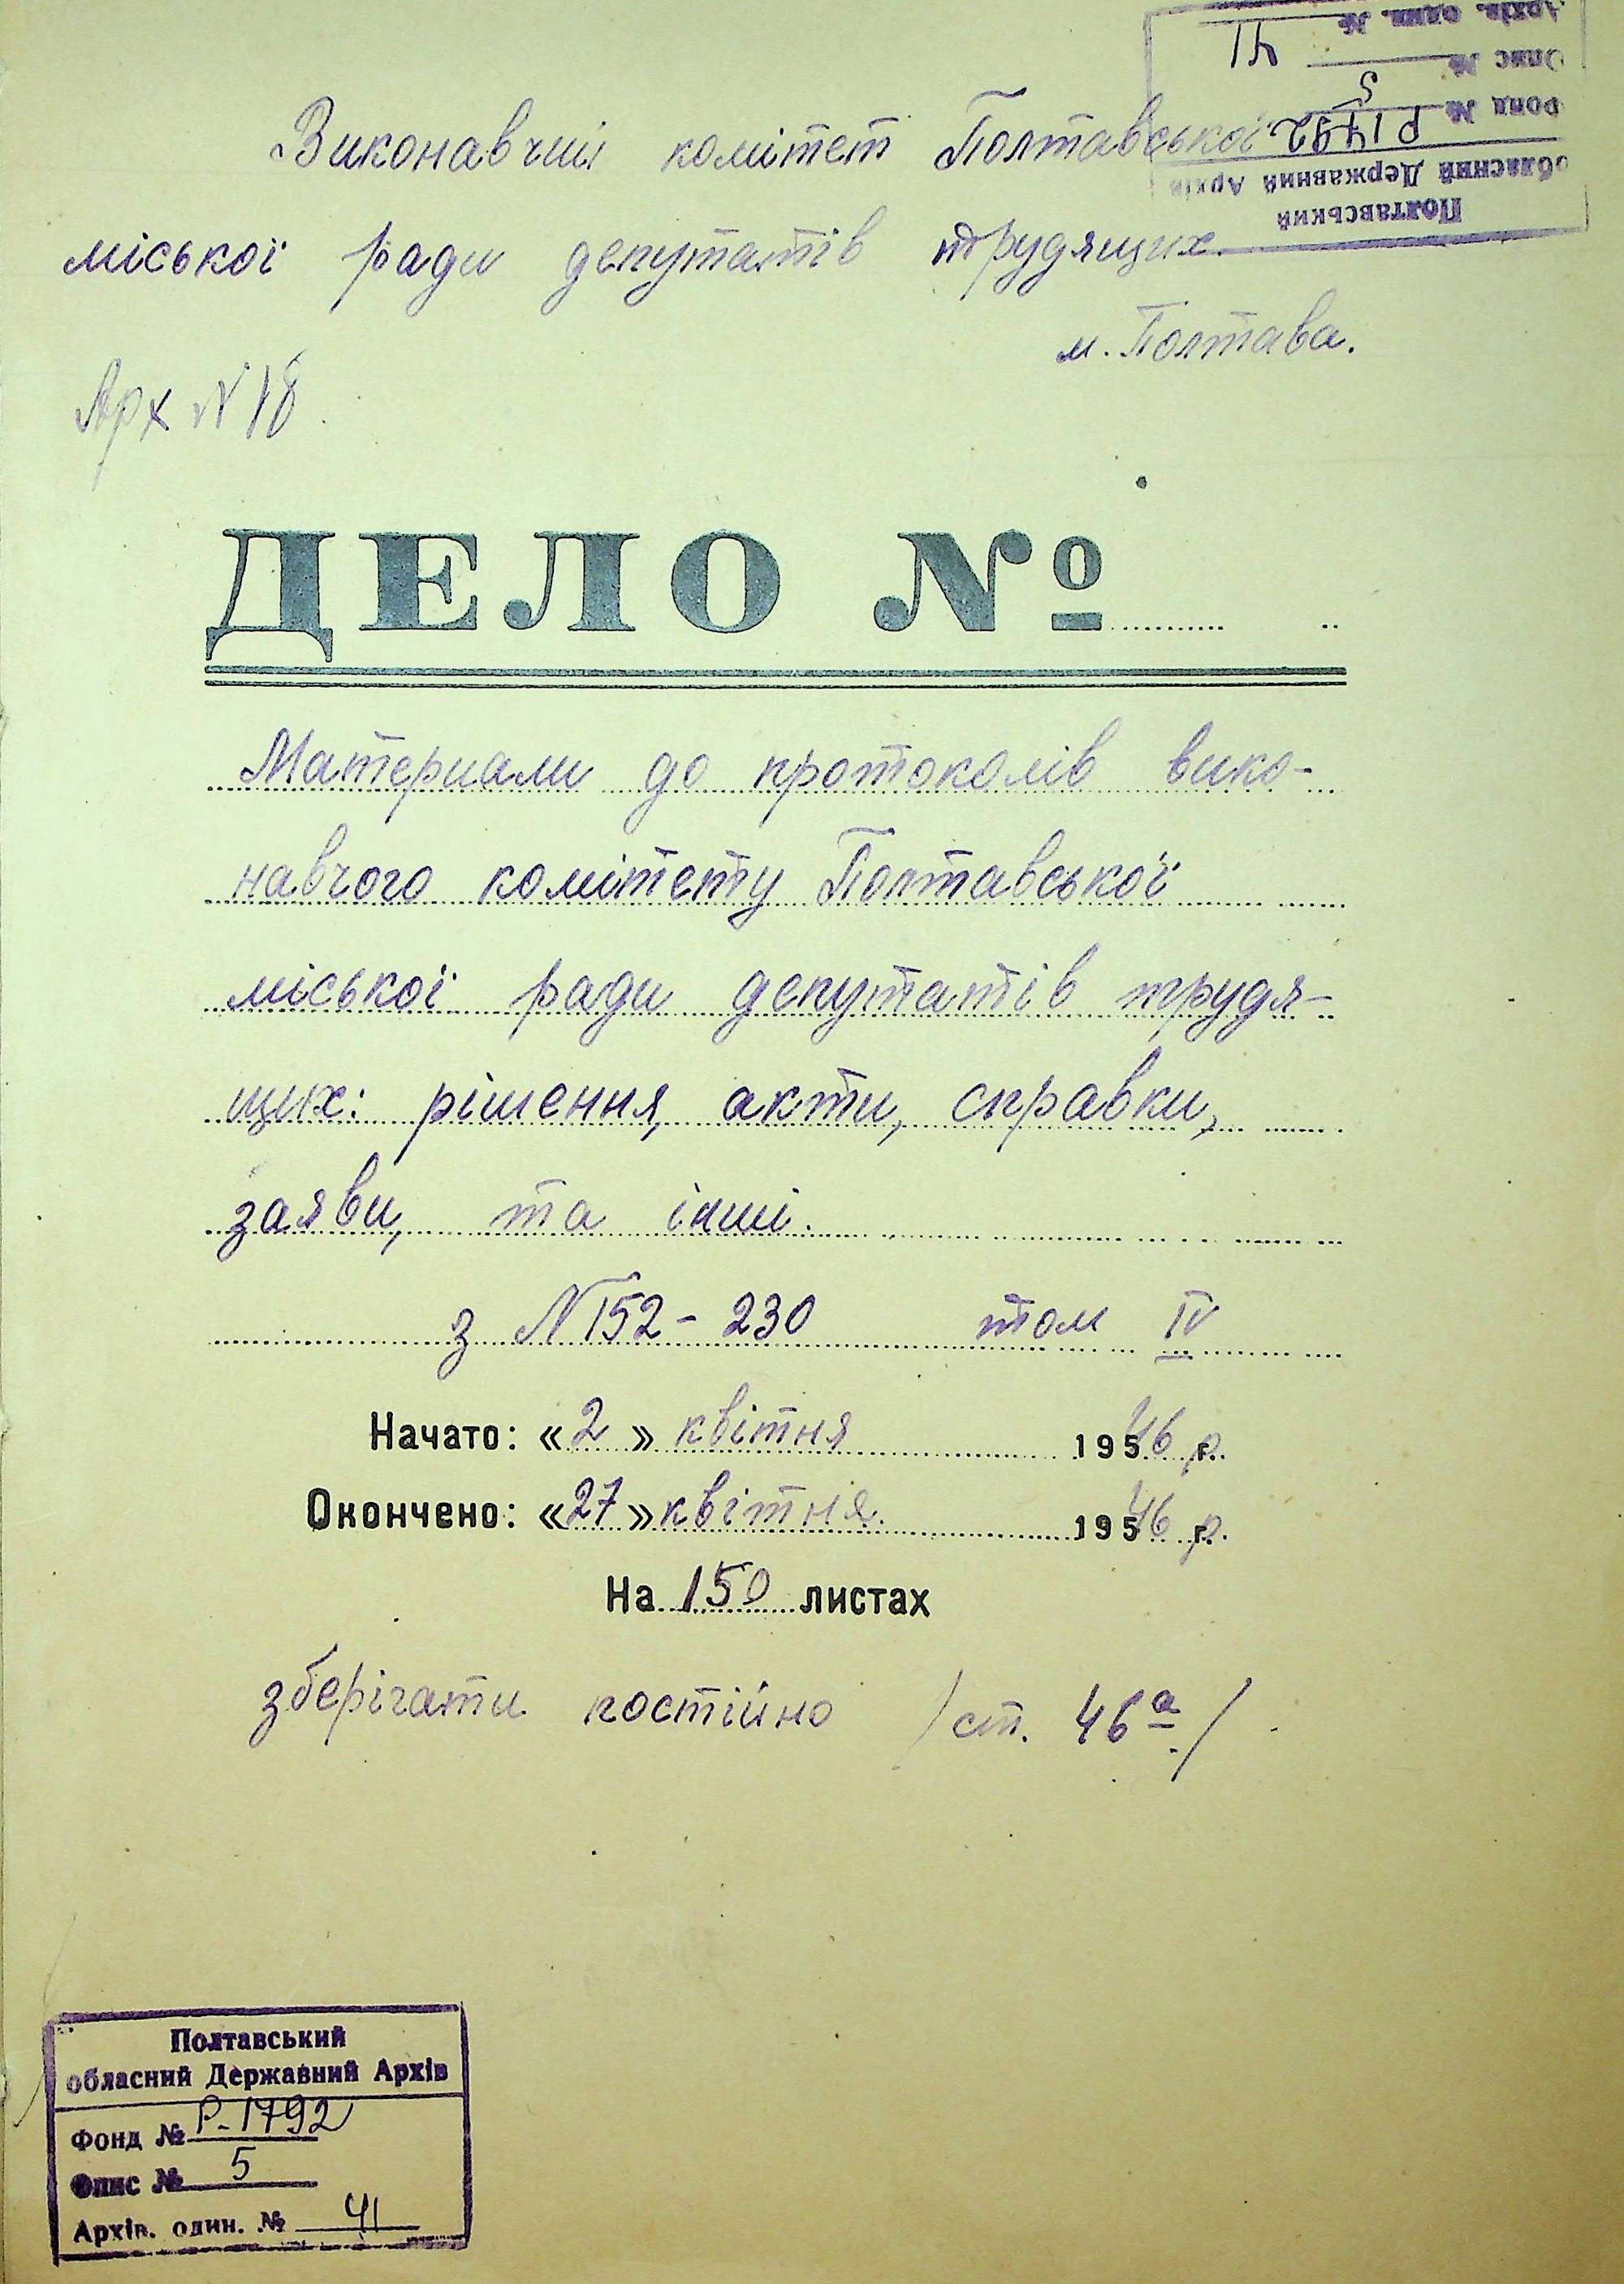 Виконавчий комітет Полтавської
міської ради депутатів трудящих
м. Полтава.
Арх N 18
Полтавський
обласний Державний Архів
Фонд № Р1792
Опис № 5
Архів. один. № 41
ДЕЛО №
Материали до протоколів вико-
навчого комітету Полтавської
міської ради депутатів трудя-
щих: рішення, акти, справки,
заяви, та інші.
з N 152 - 230 том IV
Начато: «2» квітня 1946 р.
Окончено: «27» квітня 1946 р.
На 150 листах
зберігати постійно /ст. 46а/
Полтавський
обласний Державний Архів
Фонд № Р-1792
Опис № 5
Архів. один. № 41